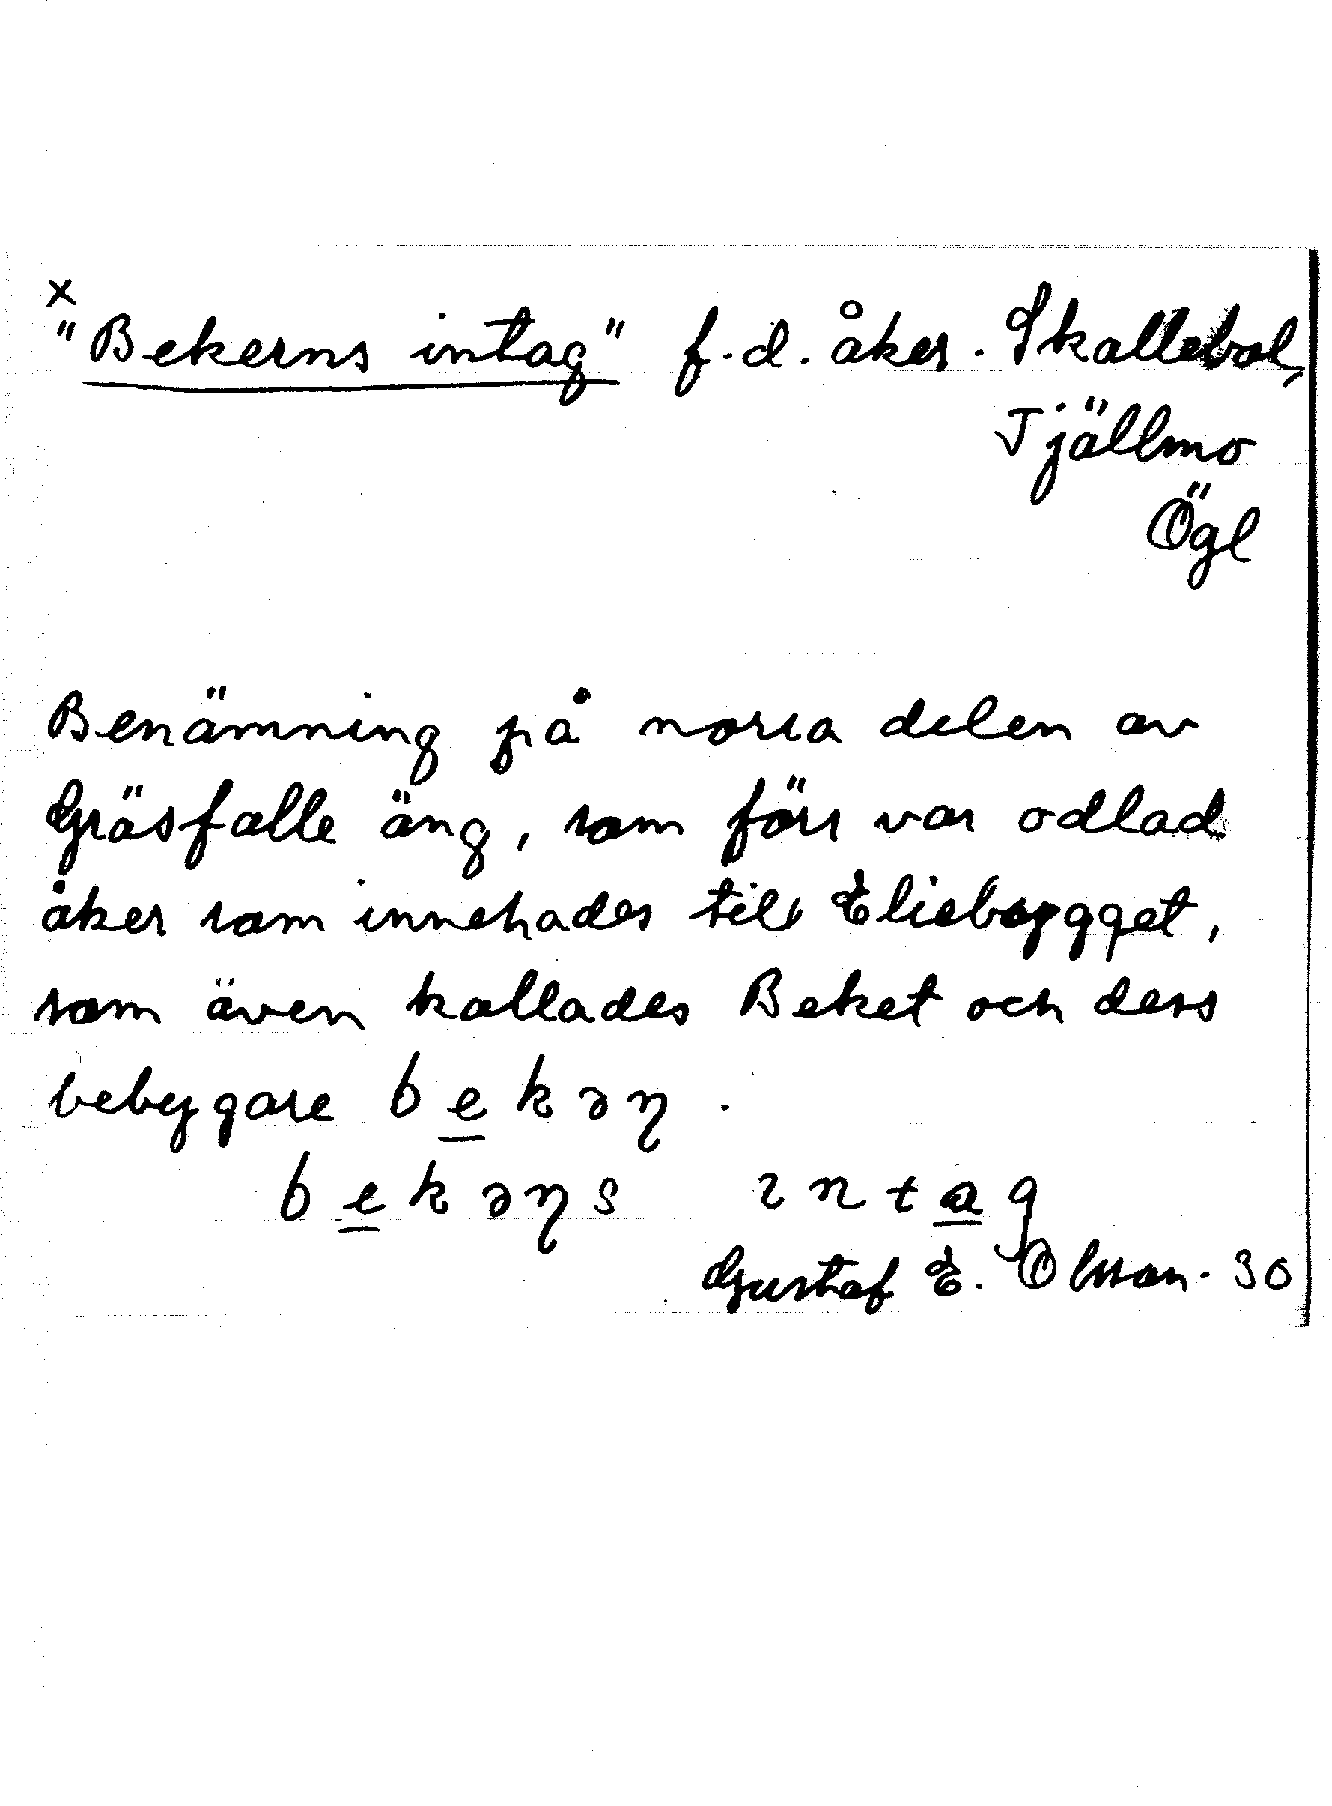 x
"Bekerns intag" f.d. åker. Skallebol,
Tjällmo
Ögl
Benämning på norra delen av
Gräsfalle äng, som förr var odlad
åker som innehades till Eliebygget,
som även kallades Beket och dess
bebyggare bekəɳ.
bekəɳs ıntag
Gustaf E. Olsson. 30